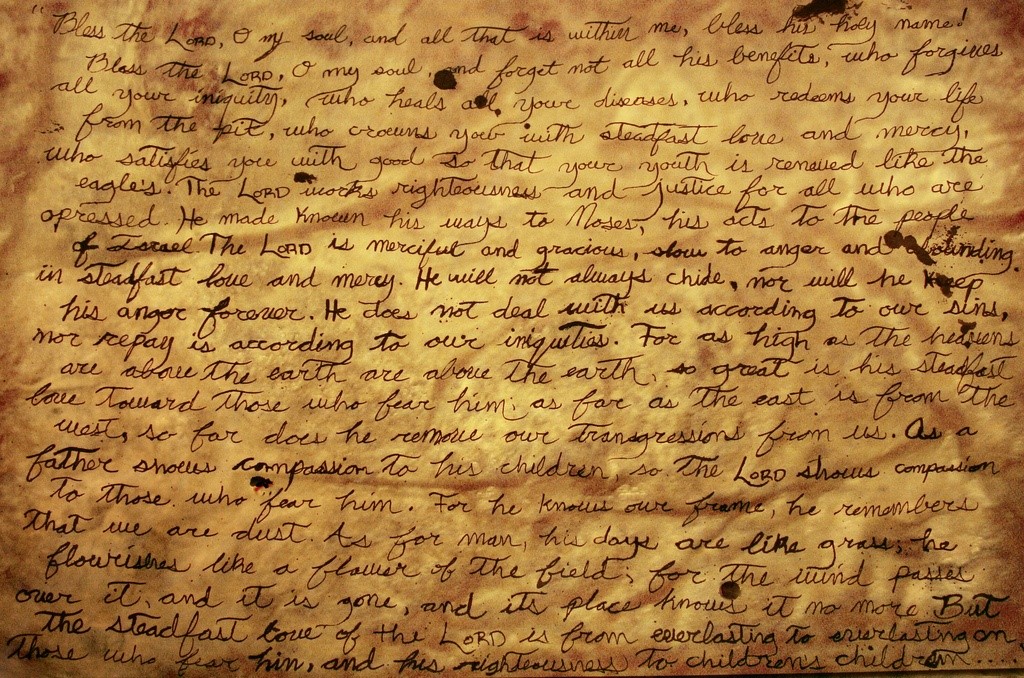 "Bless the LORD, O my soul, and all that is within me, bless his holy name!
Bless the LORD, O my soul, and forget not all his benefits, who forgives
all your iniquity, who heals all your diseases, who redeems your life
from the pit, who crowns you with steadfast love and mercy,
who satisfies you with good so that your youth is renewed like the
eagle's. The LORD works righteousness and justice for all who are
opressed. He made known his ways to Moses, his acts to the people
of Israel The LORD is merciful and gracious, slow to anger and
in steadfast love and mercy. He will not always chide, nor will he keep
his anger forever. He does not deal with us according to our sins,
nor repay is according to our iniquities. For as high as the heavens
are above the earth are above the earth, so great is his steadfast
love toward those who fear him; as far as the east is from the
west, so far does he remove our transgressions from us. As a
father shows compassion to his children, so the LORD shows compassion
to those who fear him. For he knows our frame, he remembers
that we are dust. As for man, his days are like grass; he
flourishes like a flower of the field; for the wind passes
over it, and it is gone, and its place knows it no more. But
the steadfast love of the LORD is from everlasting to everlasting on
those who fear him, and his righteousness to children's children.....